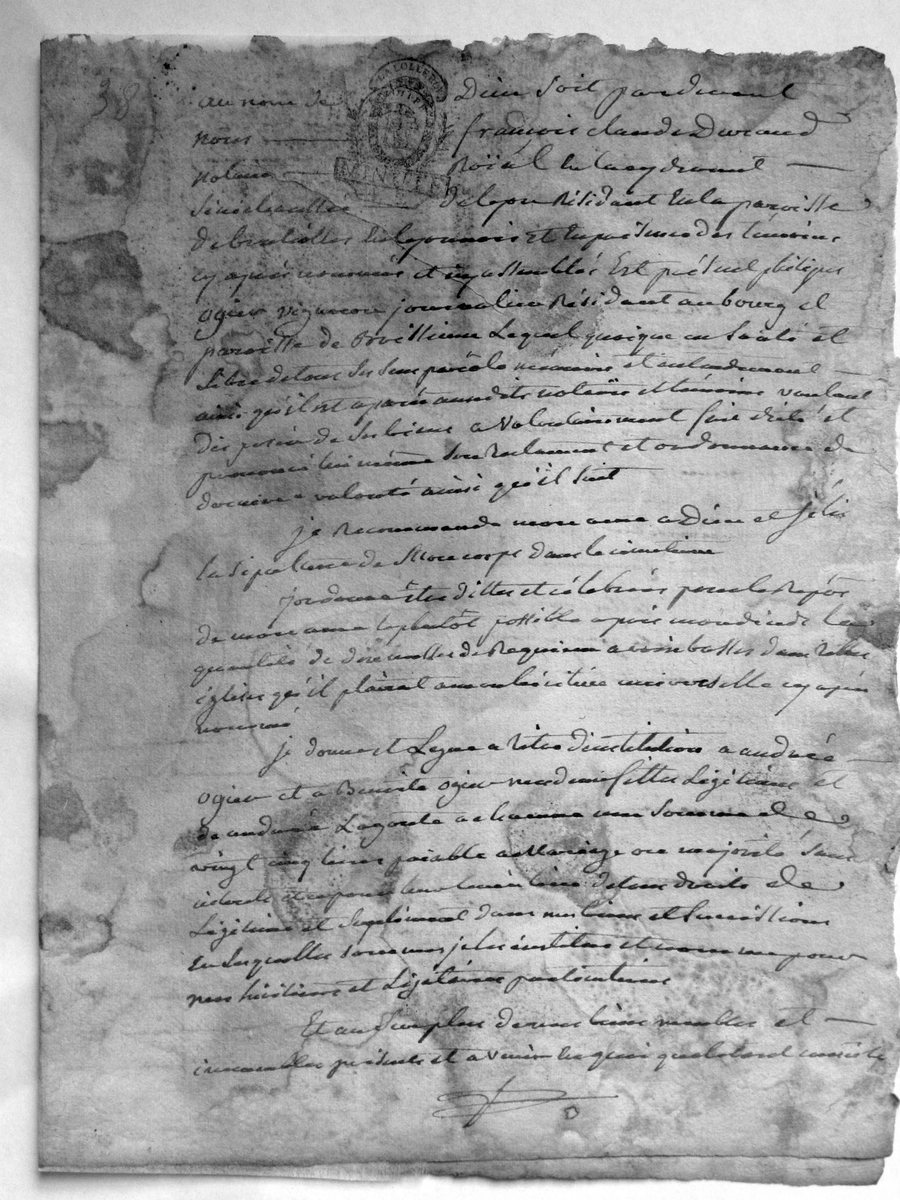 38
au nom de Dieu soit par devant
nous françois claude Durand
notaire Roïal
Sénéchaussée de Lyon Résidant en la paroisse
de en Lyonnois et en présence des témoins
cy après nommés et Est présent philipe
ogier vigneron journalier Résidant au bourg et
paroisse de Lequel quoique en Santé et
Libre de tous Ses Sens parole mémoire et entendement
ainsi qu'il est aparu auxdits notaire et témoins voulant
disposer de Ses biens a volontairement fait dicté et
prononcé lui même Son testament et ordonnance de
derniere volonté ainsi qu'il Suit
je Recommande mon ame a Dieu et
la sépulture de Mon corps dans le cimetiere
j'ordonne Etre dittes et célébrées pour le Repos
de mon ame le plutôt possible après mon décès la
quantité de messes de Requiem a voix basses dans telles
églises qu'il plaira a mon héritiere universelle cy après
nommé
je donne et Legue a titre d'institution a andrée
ogier et a Benoite ogier mes deux filles Légitimes et
de andrée Lagoute a chacune une Somme de
vingt cinq livres paiable a Mariage ou majorité Sans
interets et ce pour leur tenir lieu de tous droits de
Légitime et Suplément dans mes biens et Successions
En Lesquelles Sommes je les institue et nomme pour
mes héritieres et Légataires particulieres
Et au Surplus de mes biens meubles et
immeubles présents et a venir En quoi